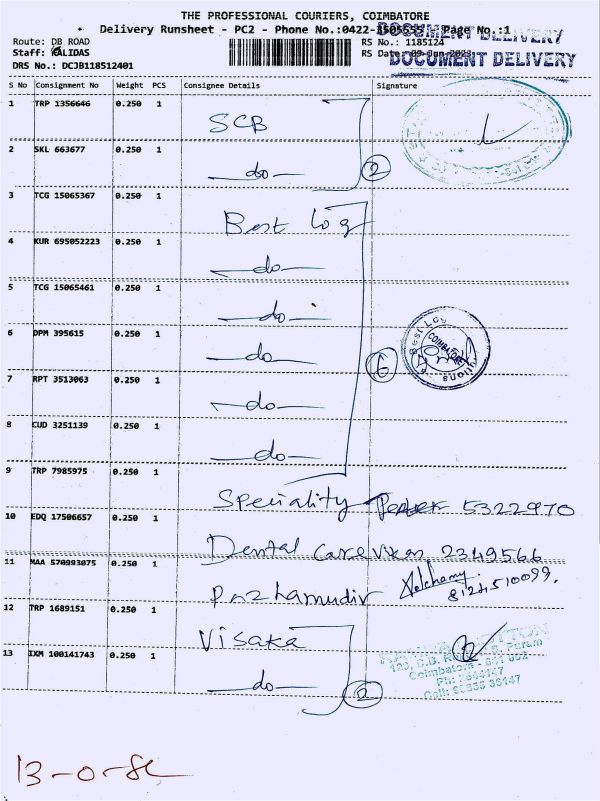 THE PROFESSIONAL COURIERS, COIMBATORE
Delivery Runsheet - PC2 - Phone No.:0422- Page No.:1
DOCUMENT DELIVERY
DOCUMENT DELIVERY
Route: DB ROAD
RS No.: 1185124
Staff: KALIDAS
RS Date: 09-Jun-2023
DRS No.: DCJB118512401
S No Consignment No Weight PCS Consignee Details Signature
1 TRP 1356646 0.250 1 SCB
2 SKL 663677 0.250 1 do 2
3 TCG 15065367 0.250 1 Best log
4 KUR 695052223 0.250 1 do
5 TCG 15065461 0.250 1 do
6 DPM 395615 0.250 1 do 6
COIMBATORE
7 RPT 3513063 0.250 1 do
8 CUD 3251139 0.250 1 do
9 TRP 7985975 0.250 1 Speciality 5322970
10 EDQ 17506657 0.250 1 Dental care 2349566
11 MAA 570993075 0.250 1 Pazhamudir 8124510099.
12 TRP 1689151 0.250 1 Visaka
13 IXM 100141743 0.250 1 do 2
Coimbatore - 641 002
13-0-82